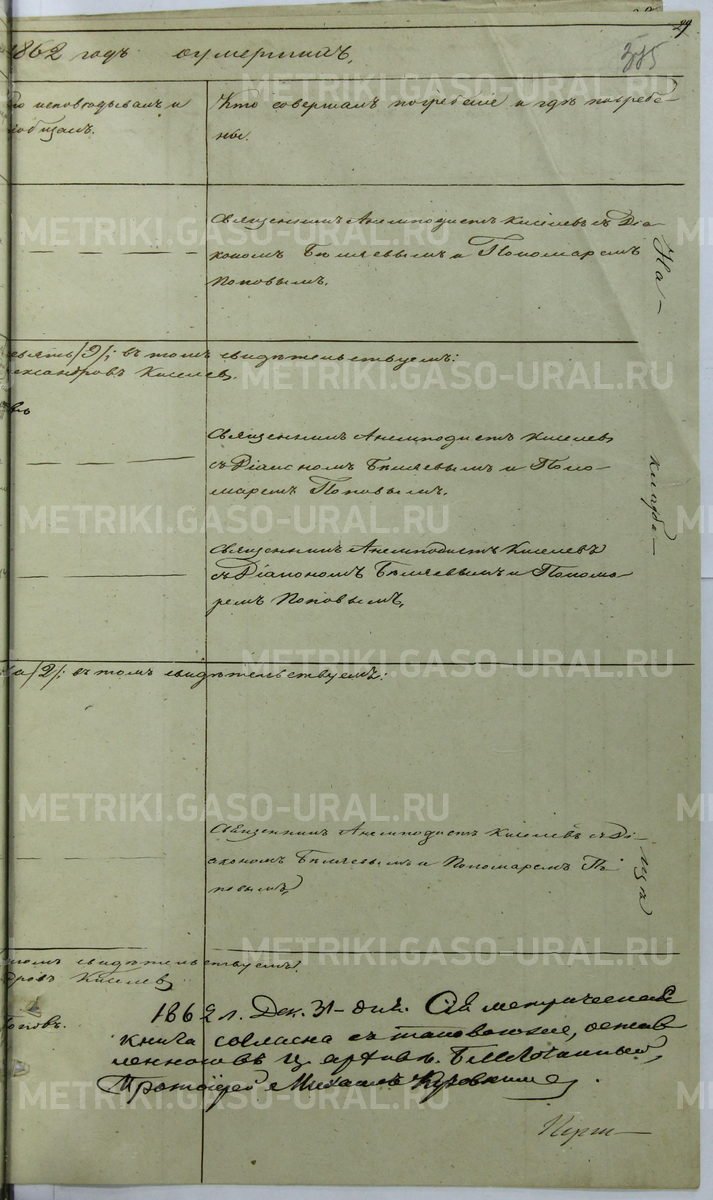 29
1862 годъ о умершихъ.
385
исповѣдывалъ и
пріобщалъ.
Кто совершалъ погребеніе и гдѣ погребе-
ны.
Священникъ Анемподистъ Киселевъ съ Діа-
кономъ Бѣляевымъ и Пономаремъ
Поповымъ.
На-
/9/; въ томъ свидѣтельствуемъ:
Киселев.
Священникъ Анемподистъ Киселевъ
съ Діакономъ Бѣляевымъ и Поно-
маремъ Поповымъ.
кладбе-
Священникъ Анемподистъ Киселевъ
съ Діакономъ Бѣляевымъ и Понома-
ремъ Поповымъ.
/2/; въ томъ свидѣтельствуемъ:
Священникъ Анемподистъ Киселевъ съ Ді-
акономъ Бѣляевымъ и Пономаремъ По-
повымъ.
щѣ
томъ свидѣтельствуемъ:
Киселев
Поповъ.
1862 г. Дек. 31 дня. Сія метрическая
книга согласна съ таковою же, остав
ленною въ ц. архивѣ.
Протоіерей Михаилъ
METRIKI.GASO-URAL.RU